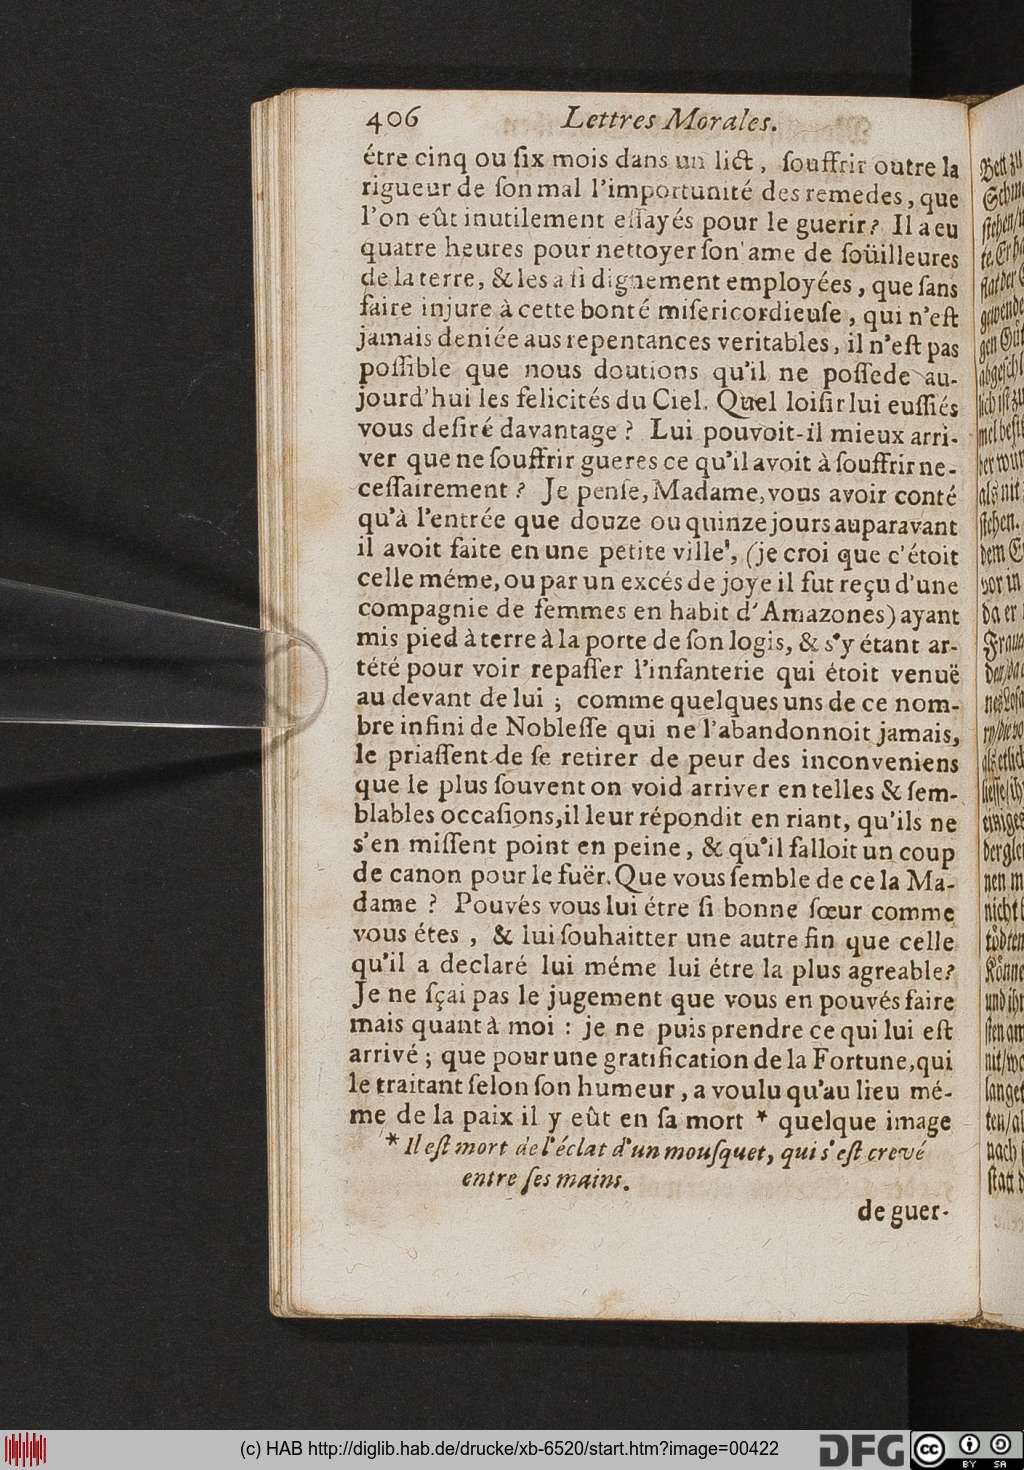 406 Lettres Morales.
étre cinq ou six mois dans un lict, souffrir outre la
rigueur de son mal l'importunité des remedes, que
l'on eût inutilement essayés pour le guerir? Il a eu
quatre heures pour nettoyer son ame de soüilleures
de la terre, & les a si dignement employées, que sans
faire injure à cette bonté misericordieuse, qui n'est
jamais deniée aus repentances veritables, il n'est pas
possible que nous doutions qu'il ne possede au-
jourd'hui les felicités du Ciel. Quel loisir lui eussiés
vous desiré davantage? Lui pouvoit-il mieux arri-
ver que ne souffrir gueres ce qu'il avoit à souffrir ne-
cessairement? Je pense, Madame, vous avoir conté
qu'à l'entrée que douze ou quinze jours auparavant
il avoit faite en une petite ville', (je croi que c'étoit
celle méme, ou par un excés de joye il fut reçu d'une
compagnie de femmes en habit d'Amazones) ayant
mis pied à terre à la porte de son logis, & s'y étant ar-
tété pour voir repasser l'infanterie qui étoit venuë
au devant de lui; comme quelques uns de ce nom-
bre infini de Noblesse qui ne l'abandonnoit jamais,
le priassent de se retirer de peur des inconveniens
que le plus souvent on void arriver en telles & sem-
blables occasions, il leur répondit en riant, qu'ils ne
s'en missent point en peine, & qu'il falloit un coup
de canon pour le fuër. Que vous semble de cela Ma-
dame? Pouvés vous lui étre si bonne sœur comme
vous étes, & lui souhaitter une autre fin que celle
qu'il a declaré lui méme lui étre la plus agreable?
Je ne sçai pas le jugement que vous en pouvés faire
mais quant à moi: je ne puis prendre ce qui lui est
arrivé; que pour une gratification de la Fortune, qui
le traitant selon son humeur, a voulu qu'au lieu mé-
me de la paix il y eût en sa mort * quelque image
* Il est mort de l'éclat d'un mousquet, qui s'est crevé
entre ses mains.
de guer-
(c) HAB http://diglib.hab.de/drucke/xb-6520/start.htm?image=00422
DFG
cc BY SA